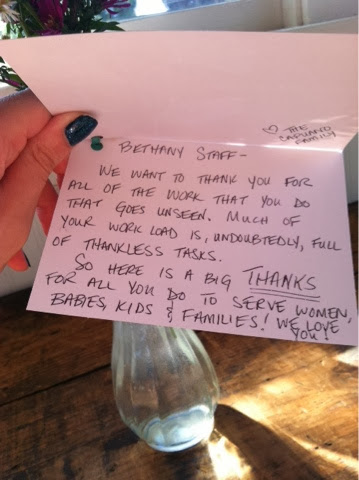 ♡ THE
FAMILY
BETHANY STAFF-
WE WANT TO THANK YOU FOR
ALL OF THE WORK THAT YOU DO
THAT GOES UNSEEN. MUCH OF
YOUR WORK LOAD IS, UNDOUBTEDLY, FULL
OF THANKLESS TASKS.
SO HERE IS A BIG THANKS
FOR ALL YOU DO TO SERVE WOMEN,
BABIES, KIDS & FAMILIES! WE LOVE
YOU!